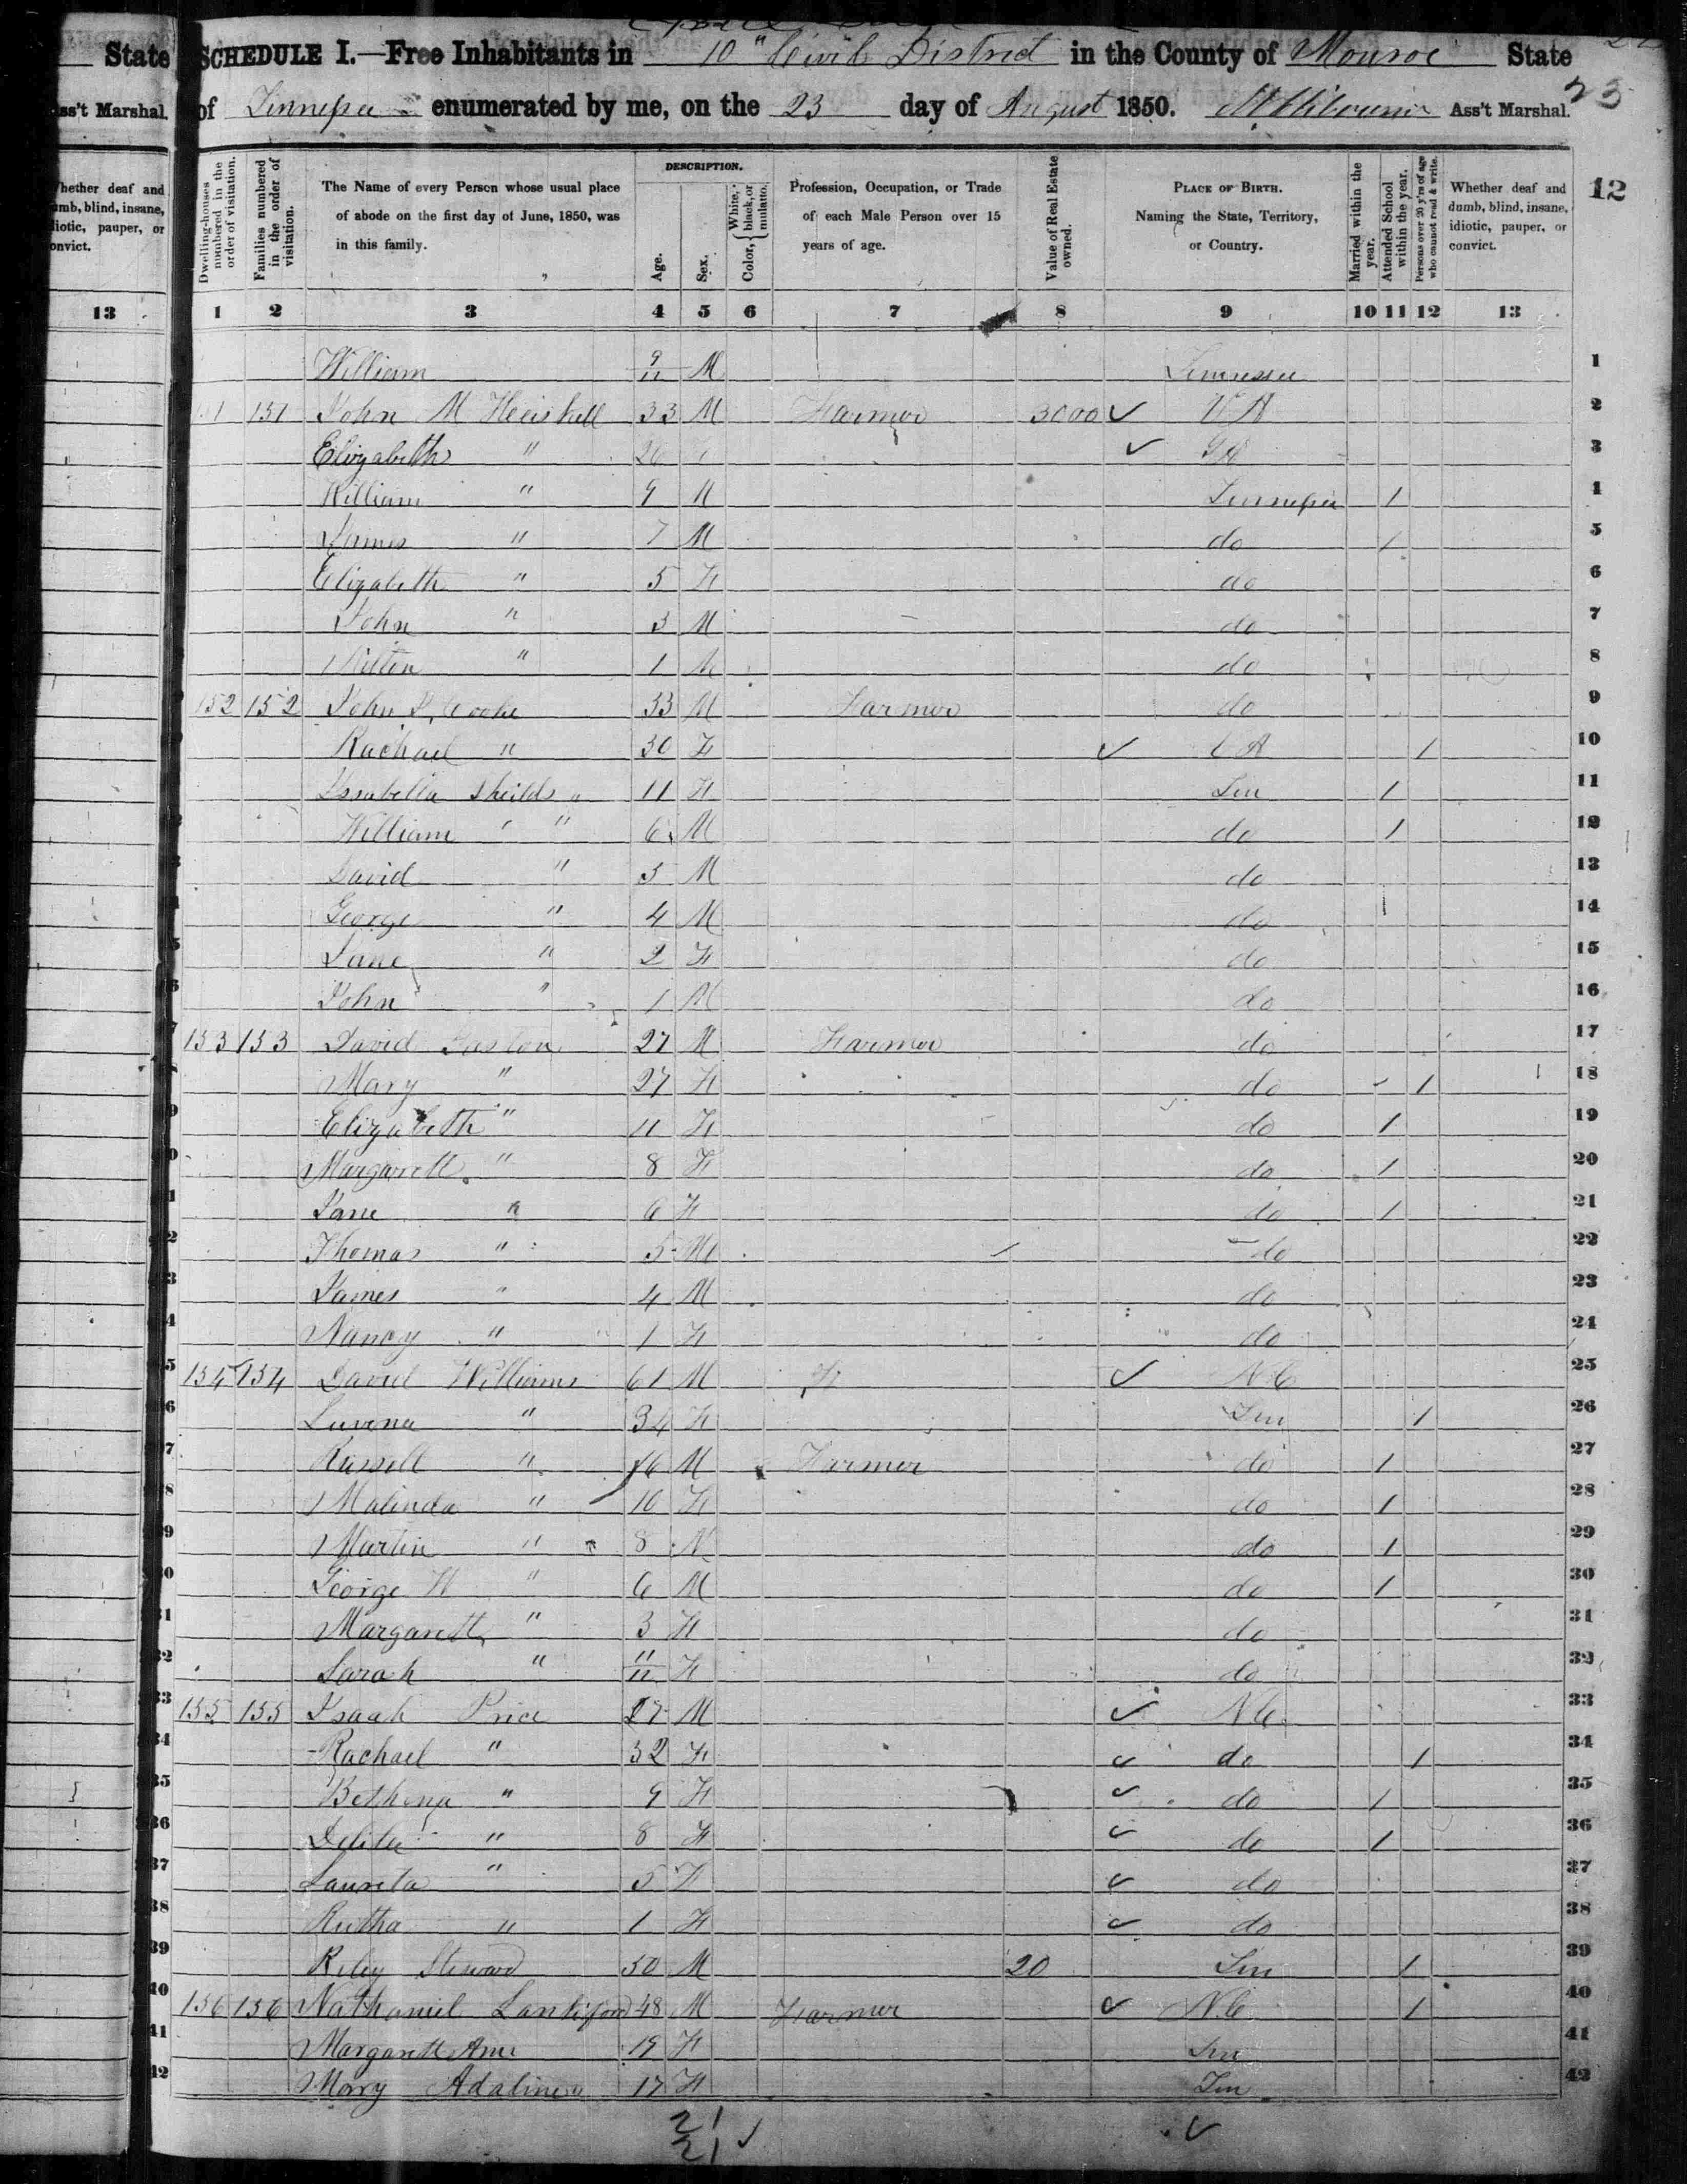 State
Ass't Marshal.
Whether deaf and
dumb, blind, insane,
idiotic, pauper, or
convict.
13
SCHEDULE I.—Free Inhabitants in 10" Civil District in the County of Monroe State
of Tennessee enumerated by me, on the 23 day of August 1850. Ass't Marshal.
23
12
Dwelling-houses numbered in the order of visitation.
Families numbered in the order of visitation.
The Name of every Person whose usual place of abode on the first day of June, 1850, was in this family.
DESCRIPTION.
Age.
Sex.
Color, { White, black, or mulatto.
Profession, Occupation, or Trade of each Male Person over 15 years of age.
Value of Real Estate owned.
PLACE OF BIRTH. Naming the State, Territory, or Country.
Married within the year.
Attended School within the year.
Persons over 20 y'rs of age who cannot read & write.
Whether deaf and dumb, blind, insane, idiotic, pauper, or convict.
1 2 3 4 5 6 7 8 9 10 11 12 13
William 9/12 M Tennessee 1
151 151 John M Heiskell 33 M Farmer 3000 ✓ VA 2
Elizabeth " 26 F ✓ 3
William " 9 M Tennessee 1 4
James " 7 M do 1 5
Elizabeth " 5 F do 6
John " 3 M do 7
Milton " 1 M do 8
152 152 John Cooke 33 M Farmer do 9
Rachael " 30 F ✓ VA 1 10
Issabella Sheilds " 11 F Ten 1 11
William " " 6 M do 1 12
David " 5 M do 13
George " 4 M do 1 14
Jane " 2 F do 15
John " 1 M do 16
153 153 David Gaston 27 M Farmer do 17
Mary " 27 F do 1 18
Elizabeth " 11 F do 1 19
Margarett " 8 F do 1 20
Jane " 6 F do 1 21
Thomas " 5 M do 22
James " 4 M do 23
Nancy " 1 F do 24
154 154 David Williams 61 M F ✓ NC 25
Luvena " 34 F Ten 1 26
Russell " 16 M Farmer do 1 27
Malinda " 10 F do 1 28
Martin " 8 M do 1 29
George W " 6 M do 1 30
Margarett " 3 F do 31
Sarah " 11/12 F do 32
155 155 Isaah Price 27 M ✓ NC 33
Rachael " 32 F ✓ do 1 34
Bethena " 9 F ✓ do 1 35
Delila " 8 F ✓ do 1 36
Laureta " 5 F ✓ do 37
Rutha " 1 F ✓ do 38
Riley Steward 50 M 20 Ten 1 39
156 156 Nathaniel Lankford 48 M Farmer ✓ NC 1 40
Margarett Ann 19 F Ten 41
Mary Adaline " 17 F Ten 42
21
21 ✓ ✓